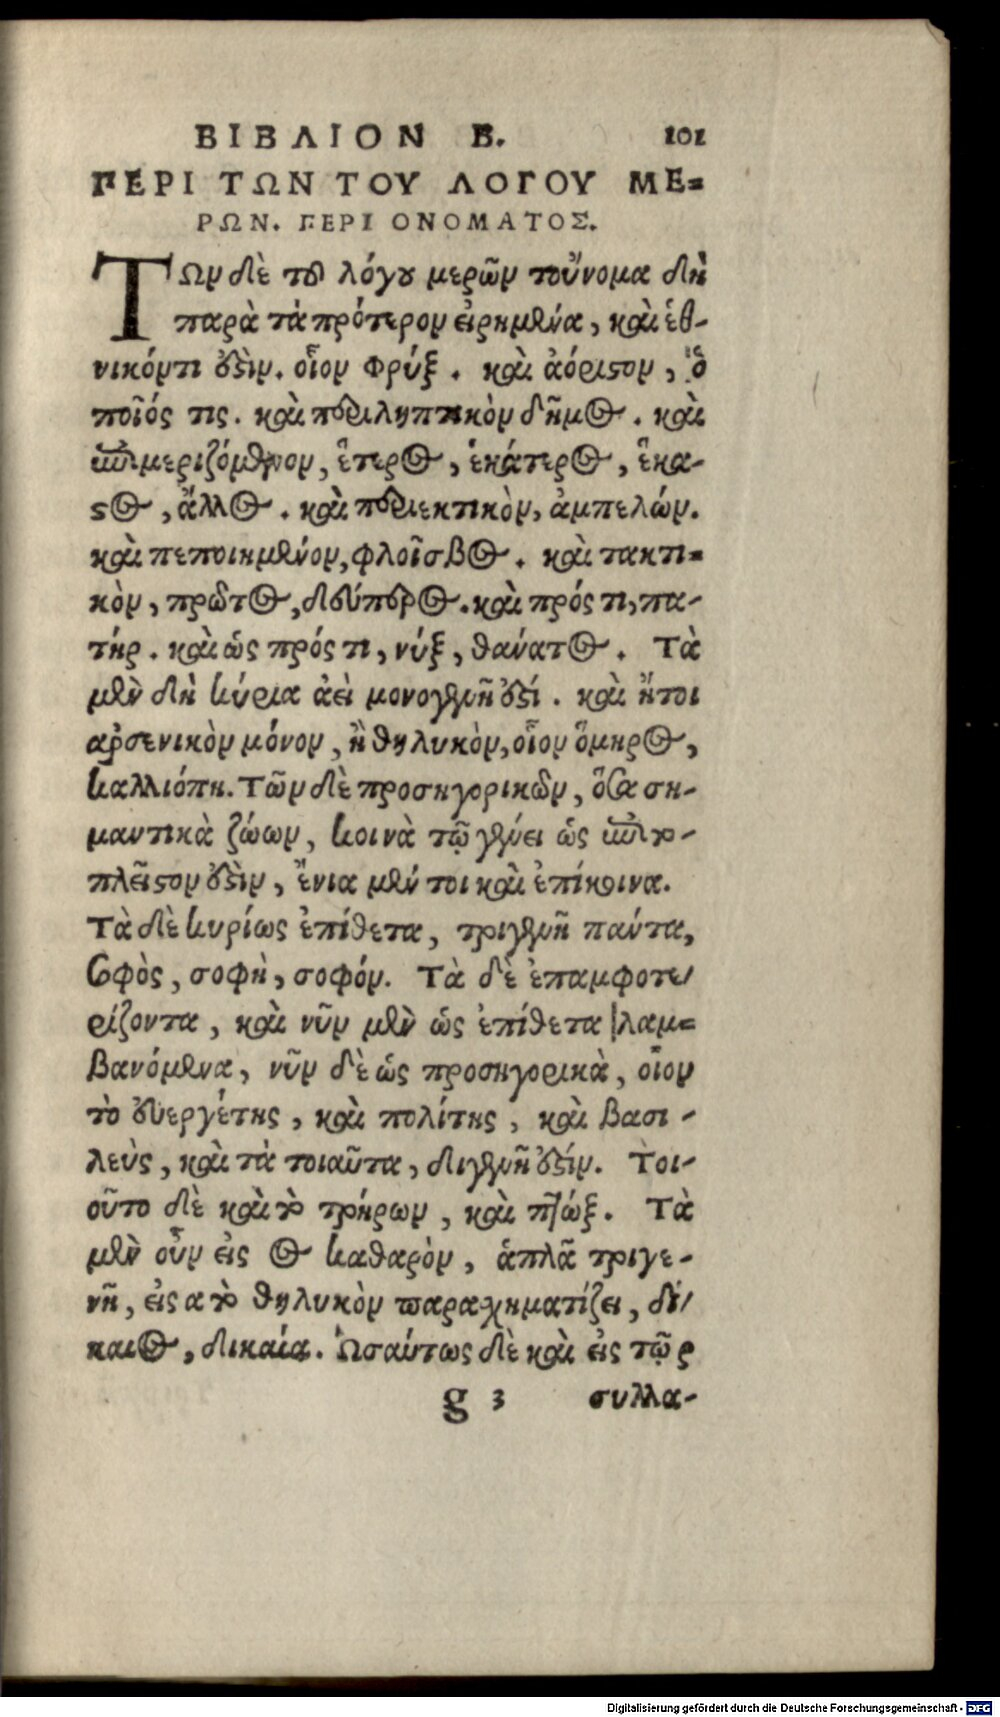 ΒΙΒΛΙΟΝ Β. 101
ΠΕΡΙ ΤΩΝ ΤΟΥ ΛΟΓΟΥ ΜΕ=
ΡΩΝ. ΠΕΡΙ ΟΝΟΜΑΤΟΣ.
ΤΩν δὲ τοῦ λόγου μερῶν τοὔνομα δὴ
παρὰ τὰ πρότερον εἰρημένα, καὶ ἐθ-
νικόν τι ὄξιν. οἷον Φρύξ. καὶ ἀόριστον, ὃ
ποῖός τις. καὶ περιληπτικὸν δῆμος. καὶ
ἐπιμεριζόμενον, ἕτερος, ἑκάτερος, ἕκα-
στος, ἄλλος. καὶ περιεκτικὸν, ἀμπελών.
καὶ πεποιημένον, φλοῖσβος. καὶ τακτι=
κὸν, πρῶτος, δεύτερος. καὶ πρός τι, πα-
τήρ. καὶ ὡς πρός τι, νύξ, θάνατος. Τὰ
μὲν δὴ κύρια ἀεὶ μονογενῆ ὄξί. καὶ ἤτοι
αρσενικὸν μόνον, ἢ θηλυκὸν, οἷον ὅμηρος,
καλλιόπη. Τῶν δὲ προσηγορικῶν, ὅσα ση-
μαντικὰ ζώων, κοινὰ τῷ γένει ὡς ἐπιτο-
πλεῖστον ὄξιν, ἔνια μέν τοι καὶ ἐπίκοινα.
Τὰ δὲ κυρίως ἐπίθετα, τριγενῆ πάντα,
σοφὸς, σοφὴ, σοφόν. Τὰ δὲ ἐπαμφοτε/
ρίζοντα, καὶ νῦν μὲν ὡς ἐπίθετα λαμ=
βανόμενα, νῦν δὲ ὡς προσηγορικὰ, οἷον
τὸ ευεργέτης, καὶ πολίτης, καὶ βασι-
λεὺς, καὶ τὰ τοιαῦτα, διγενῆ ὄξίν. Τοι-
οῦτο δὲ καὶ τὸ τρήρων, καὶ πτώξ. Τὰ
μὲν οὖν εἰς ος καθαρὸν, ἁπλᾶ τριγε-
νῆ, εἰς α τὸ θηλυκὸν παραχηματίζει, δί/
καιος, δικαία. Ὡσαύτως δὲ καὶ εἰς τῷ ρ
g 3 συλλα-
Digitalisierung gefördert durch die Deutsche Forschungsgemeinschaft - DFG